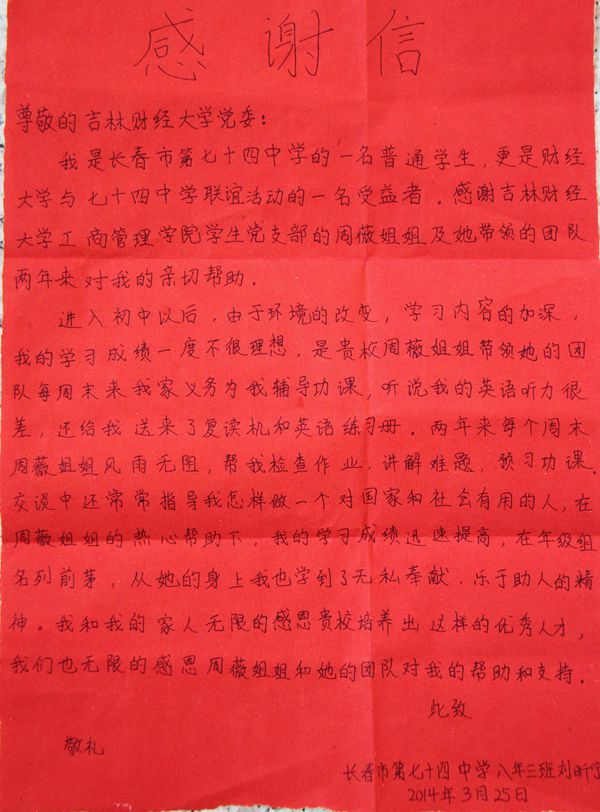 感谢信
尊敬的吉林财经大学党委：
我是长春市第七十四中学的一名普通学生，更是财经
大学与七十四中学联谊活动的一名受益者。感谢吉林财经
大学工商管理学院学生党支部的周薇姐姐及她带领的团队
两年来对我的亲切帮助。
进入初中以后，由于环境的改变，学习内容的加深，
我的学习成绩一度不很理想，是贵校周薇姐姐带领她的团
队每周末来我家义务为我辅导功课，听说我的英语听力很
差，还给我送来了复读机和英语练习册。两年来每个周末
周薇姐姐风雨无阻，帮我检查作业，讲解难题，预习功课。
交谈中还常常指导我怎样做一个对国家和社会有用的人，在
周薇姐姐的热心帮助下，我的学习成绩迅速提高，在年级组
名列前茅，从她的身上我也学到了无私奉献，乐于助人的精
神。我和我的家人无限的感恩贵校培养出这样的优秀人才，
我们也无限的感恩周薇姐姐和她的团队对我的帮助和支持。
此致
敬礼
长春市第七十四中学八年三班刘昕宁
2014年3月25日